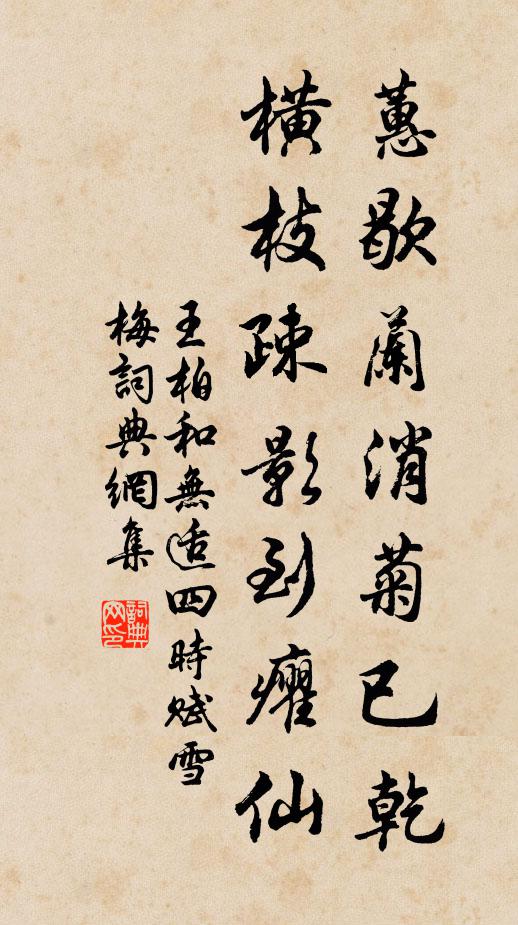 蕙歇蘭消菊已乾
橫枝疎影到癯仙
王柏和無适四時賦雪
梅詞典網集
詞典网印